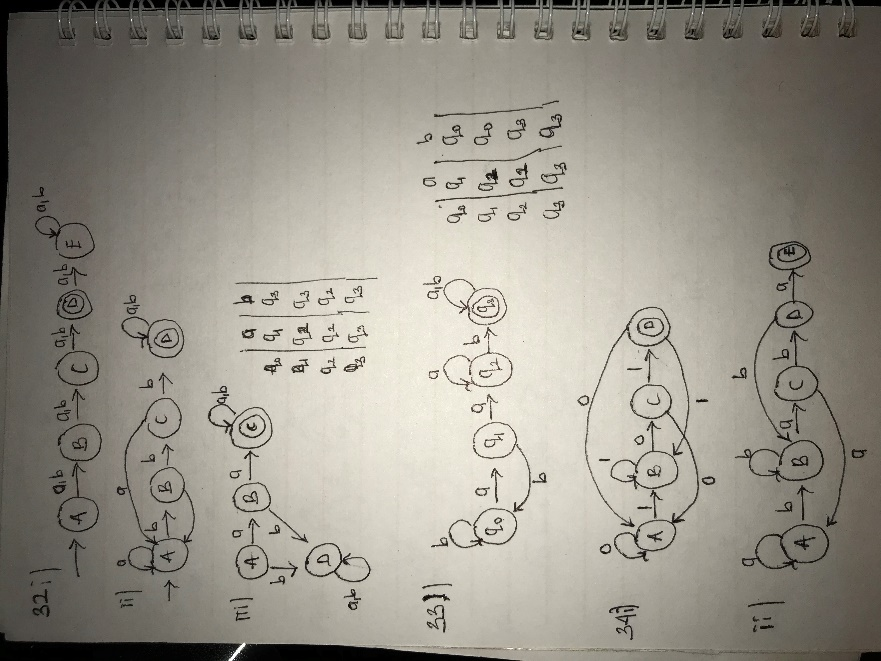 a,b
32 i) A a,b B a,b C a,b D a,b E
a a a,b
ii) A b B b C b D
a,b
iii) A a B a C
b b
D
a,b
a b
q0 q1 q3
q1 q2 q3
q2 q2 q2
q3 q3 q3
b a a,b
33) q0 a q1 a q2 b q3
b
a b
q0 q1 q0
q1 q2 q0
q2 q2 q3
q3 q3 q3
0
0 1
34 i) A 1 B 0 C 1 D
0 1
b
a b
ii) A b B a C b D a E
a